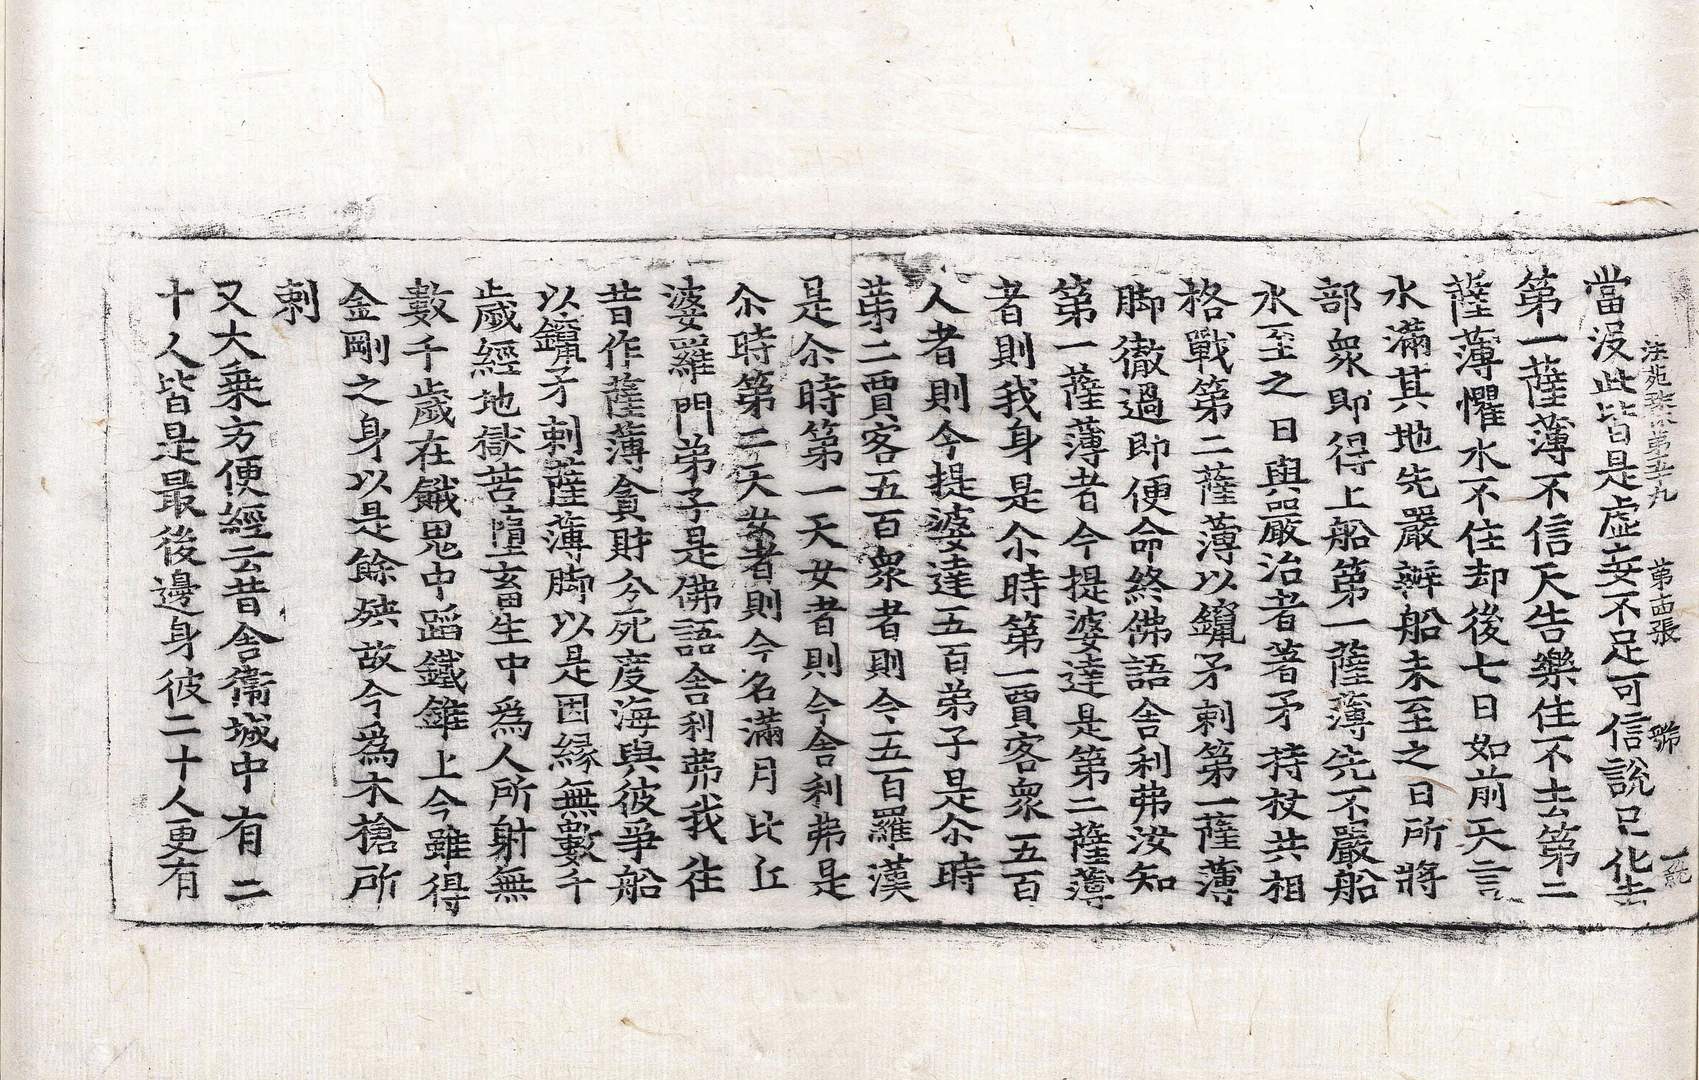 法苑珠林第五十九 第西張 號
當沒此皆是虛妄不足可信說已化去
第一薩薄不信天告樂住不去第二
薩薄懼水不住却後七日如前天言
水滿其地先嚴辦船未至之日所將
部衆即得上船第一薩薄先不嚴船
水至之日與嚴治者著矛持杖共相
格戰第二薩薄以鑹矛刺第一薩薄
脚徹過即便命終佛語舍利弗汝知
第一薩薄者今提婆達是第二薩薄
者則我身是尒時第一賈客衆五百
人者則今提婆達五百弟子是尒時
第二賈客五百衆者則今五百羅漢
是尒時第一天女者則今舍利弗是
尒時第二天女者則今名滿月比丘
婆羅門弟子是佛語舍利弗我往
昔作薩薄貪財分死度海與彼爭船
以鑹矛刺薩薄脚以是因緣無數千
歲經地獄苦墮畜生中爲人所射無
數千歲在餓鬼中蹈鐵錐上今雖得
金剛之身以是餘殃故今爲木槍所
刺
又大乘方便經云昔舍衛城中有二
十人皆是最後邊身彼二十人更有